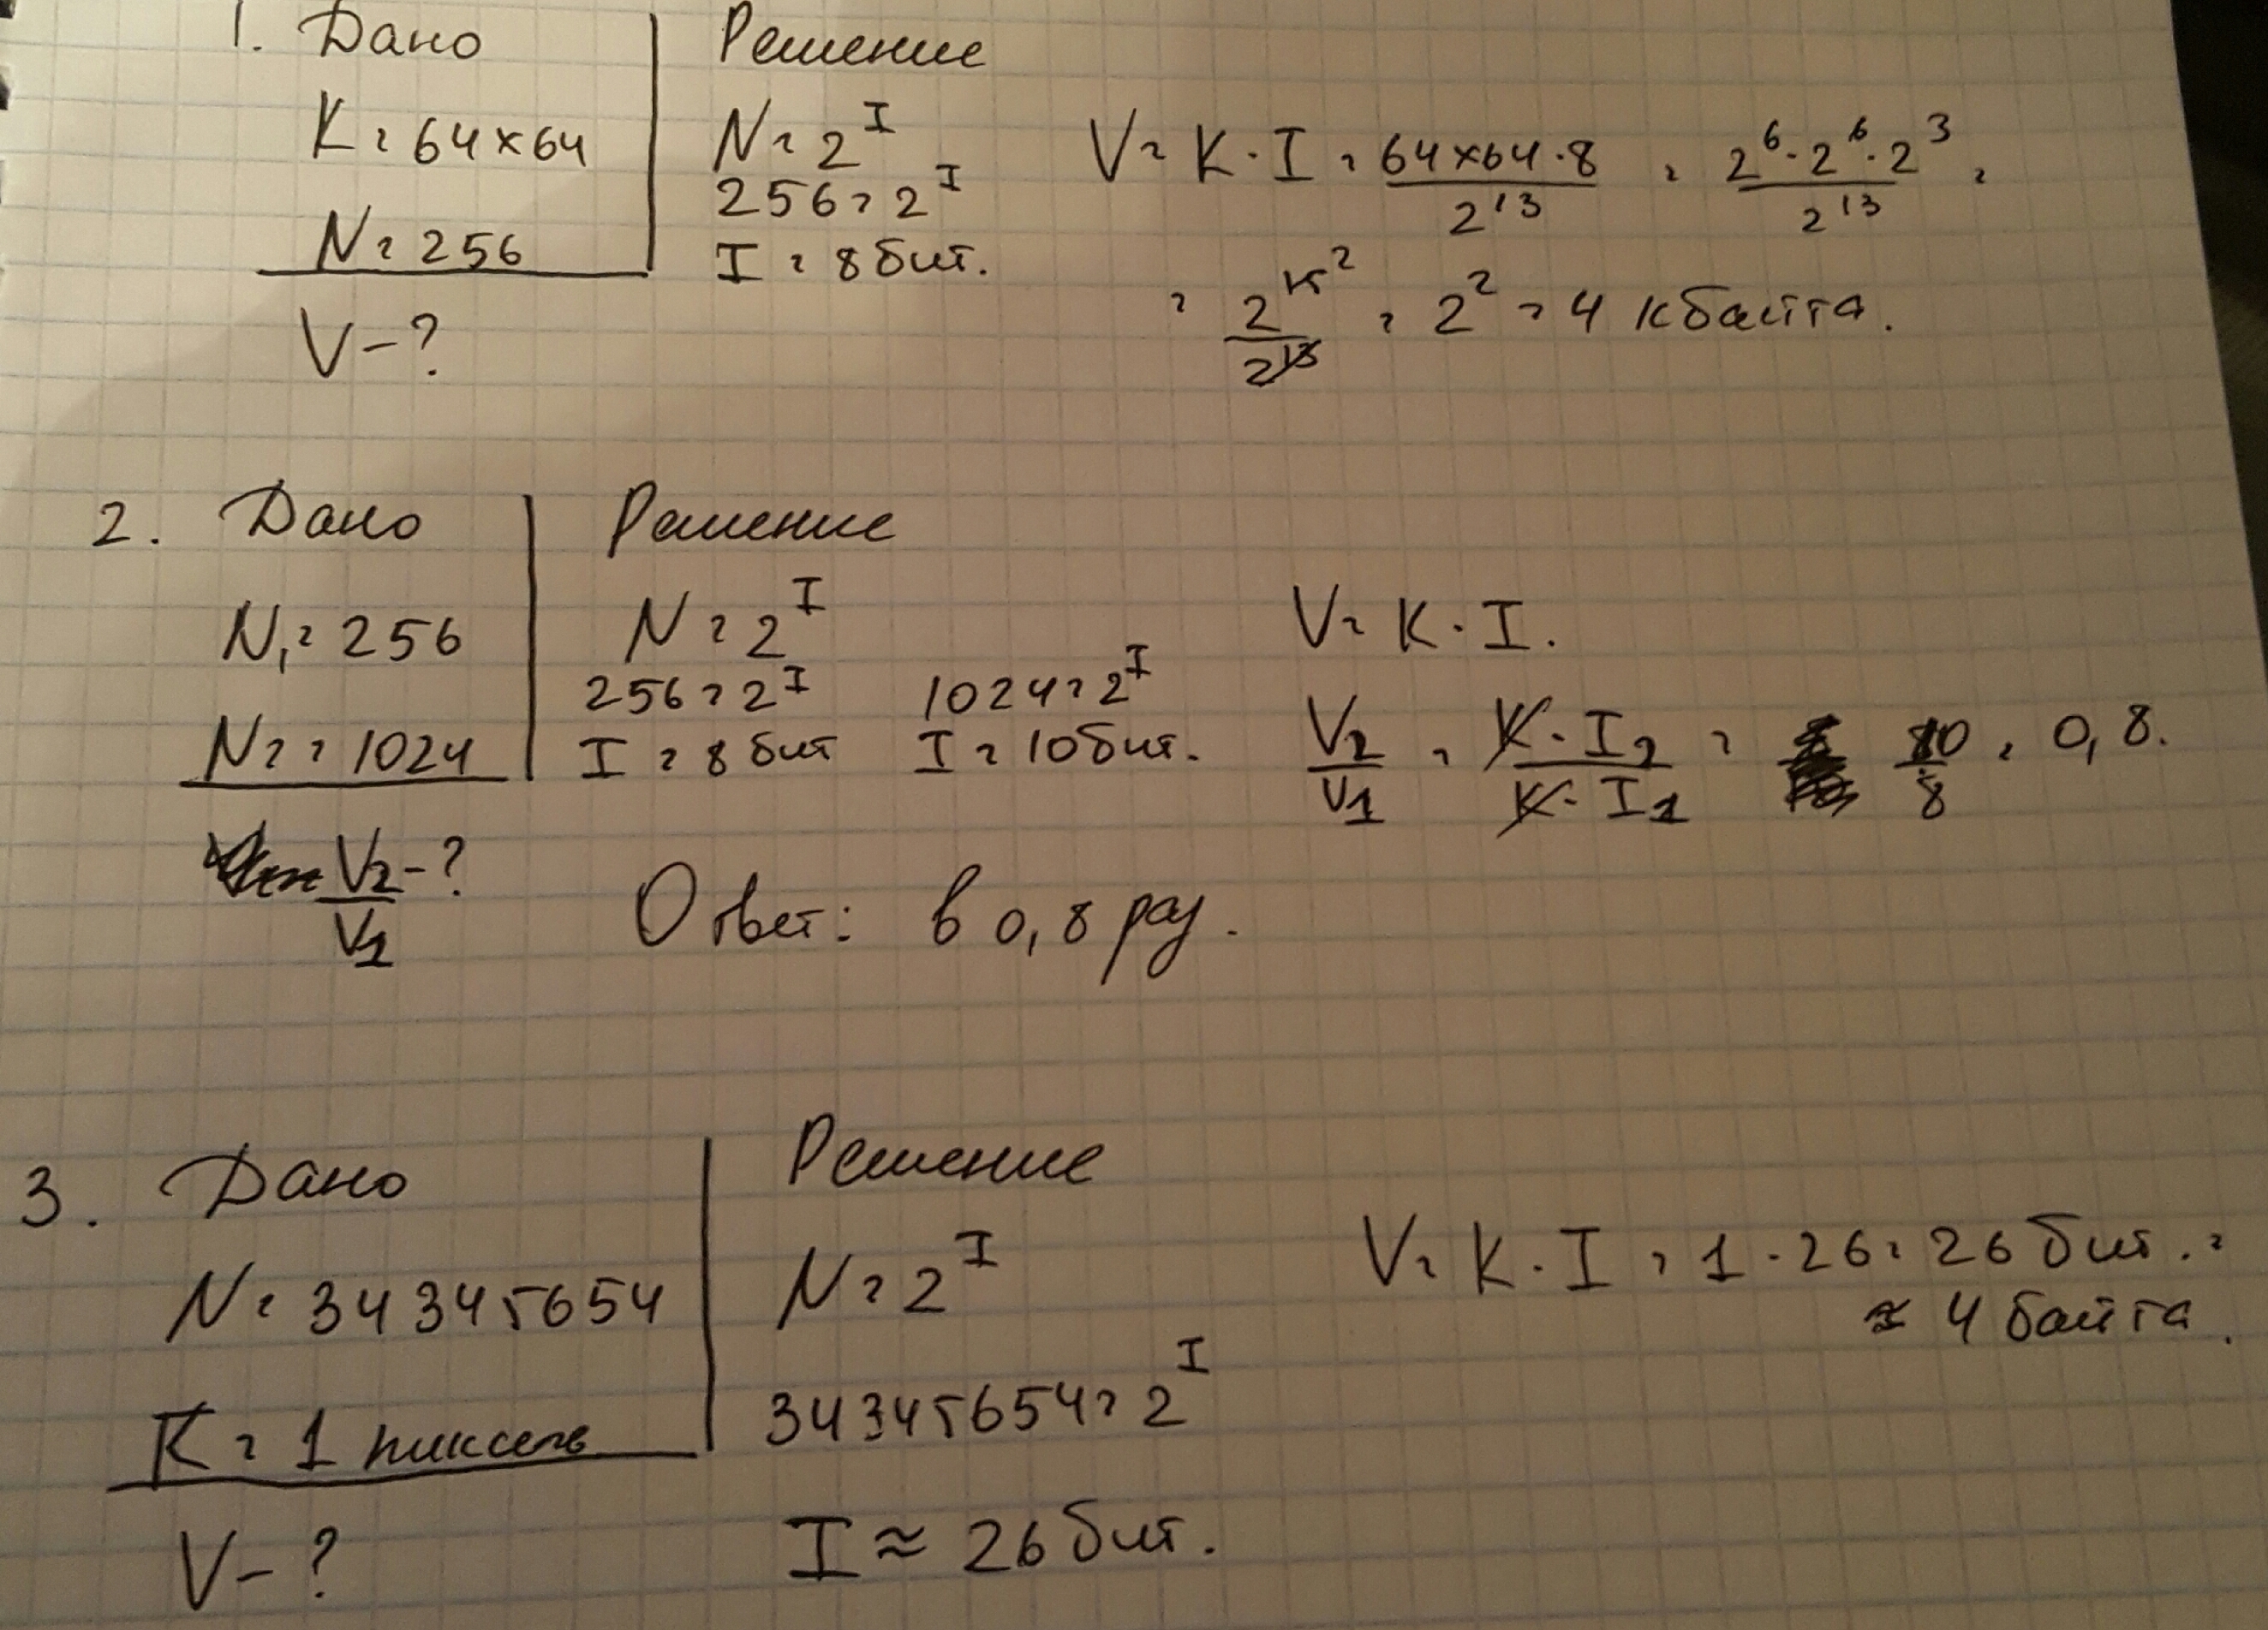 1. Дано
K = 64×64
N = 256
V – ?
Решение
N = 2^I
256 = 2^I
I = 8 бит.
V = K · I = 64×64·8 / 2^13 = 2^6 · 2^6 · 2^3 / 2^13 =
= 2^15 2 / 2^13 = 2^2 = 4 кбайта.
2. Дано
N1 = 256
N2 = 1024
V2 / V1 – ?
Решение
N = 2^I
256 = 2^I 1024 = 2^I
I = 8 бит I = 10 бит.
V = K · I.
V2 / V1 = K · I2 / K · I1 = 10 / 8 = 0,8.
Ответ: в 0,8 раз.
3. Дано
N = 34345654
K = 1 пиксель
V – ?
Решение
N = 2^I
34345654 = 2^I
I ≈ 26 бит.
V = K · I = 1 · 26 = 26 бит. =
≈ 4 байта.